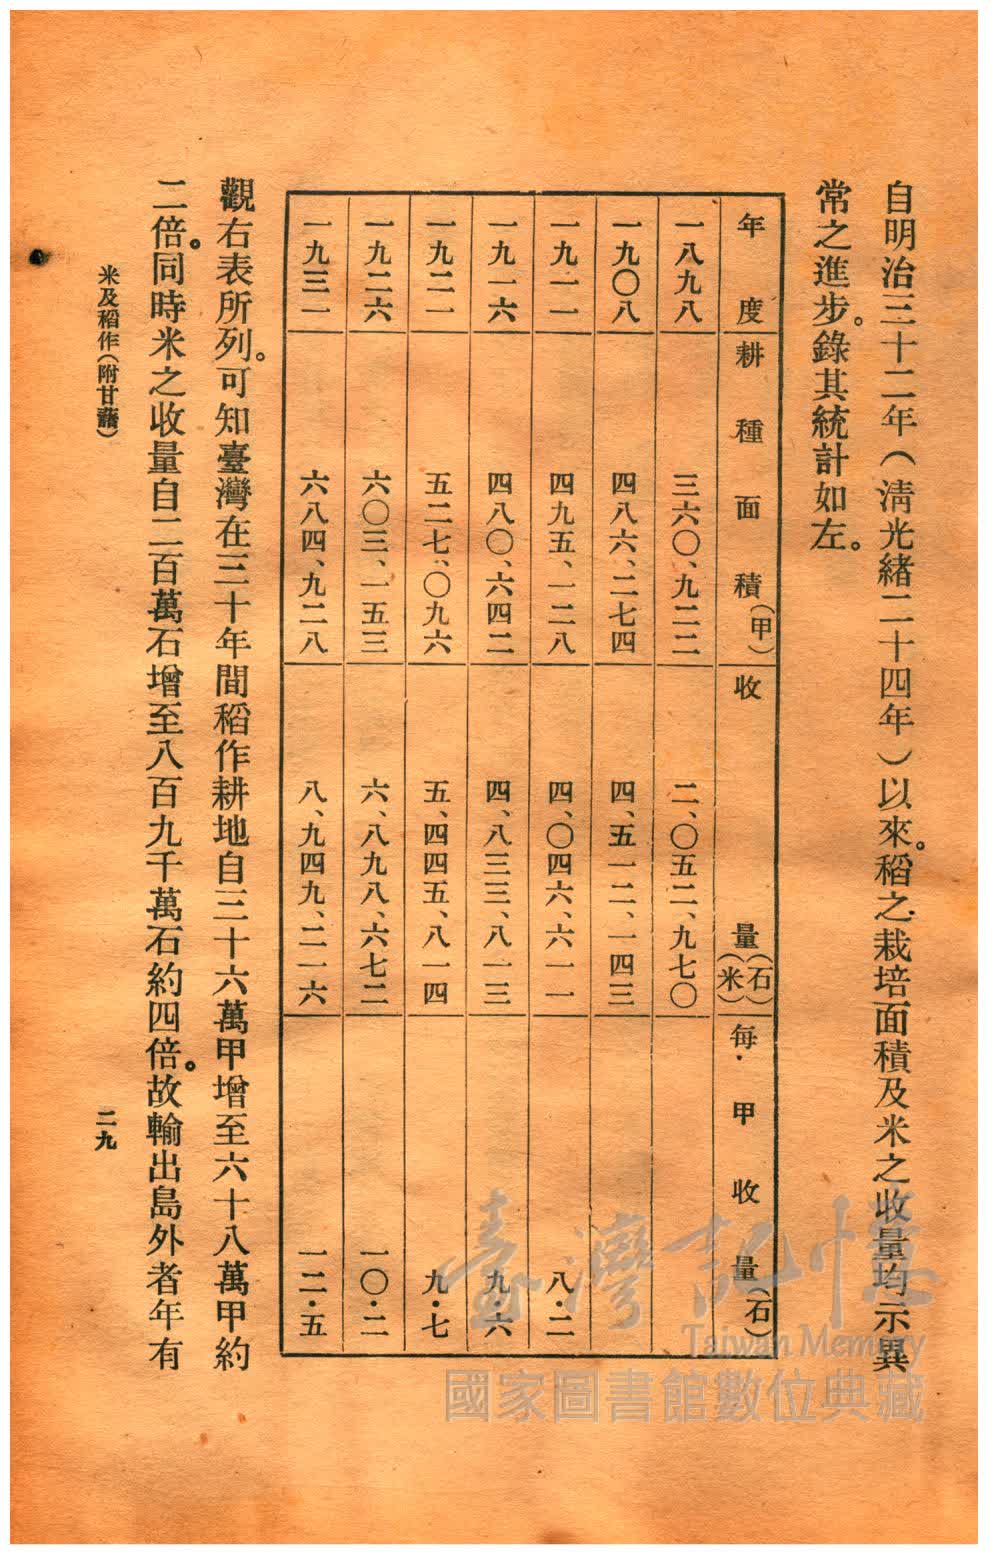 自明治三十二年(淸光緖二十四年)以來。稻之栽培面積及米之收量均示異
常之進步。錄其統計如左。
年度 耕種面積(甲) 收量(石)(米) 每甲收量(石)
一八九八 三六〇、九二二 二、〇五二、九七〇
一九〇八 四八六、二七四 四、五一二、一四三
一九一一 四九五、一二八 四、〇四六、六一一 八・二
一九一六 四八〇、六四二 四、八三三、八一三 九・六
一九二一 五二七、〇九六 五、四四五、八一四 九・七
一九二六 六〇三、一五三 六、八九八、六七二 一〇・二
一九三一 六八四、九二八 八、九四九、二一六 一二・五
觀右表所列。可知臺灣在三十年間稻作耕地自三十六萬甲增至六十八萬甲約
二倍。同時米之收量自二百萬石增至八百九千萬石約四倍。故輸出島外者年有
米及稻作(附甘藷)
二九
臺灣記憶
Taiwan Memory
國家圖書館數位典藏